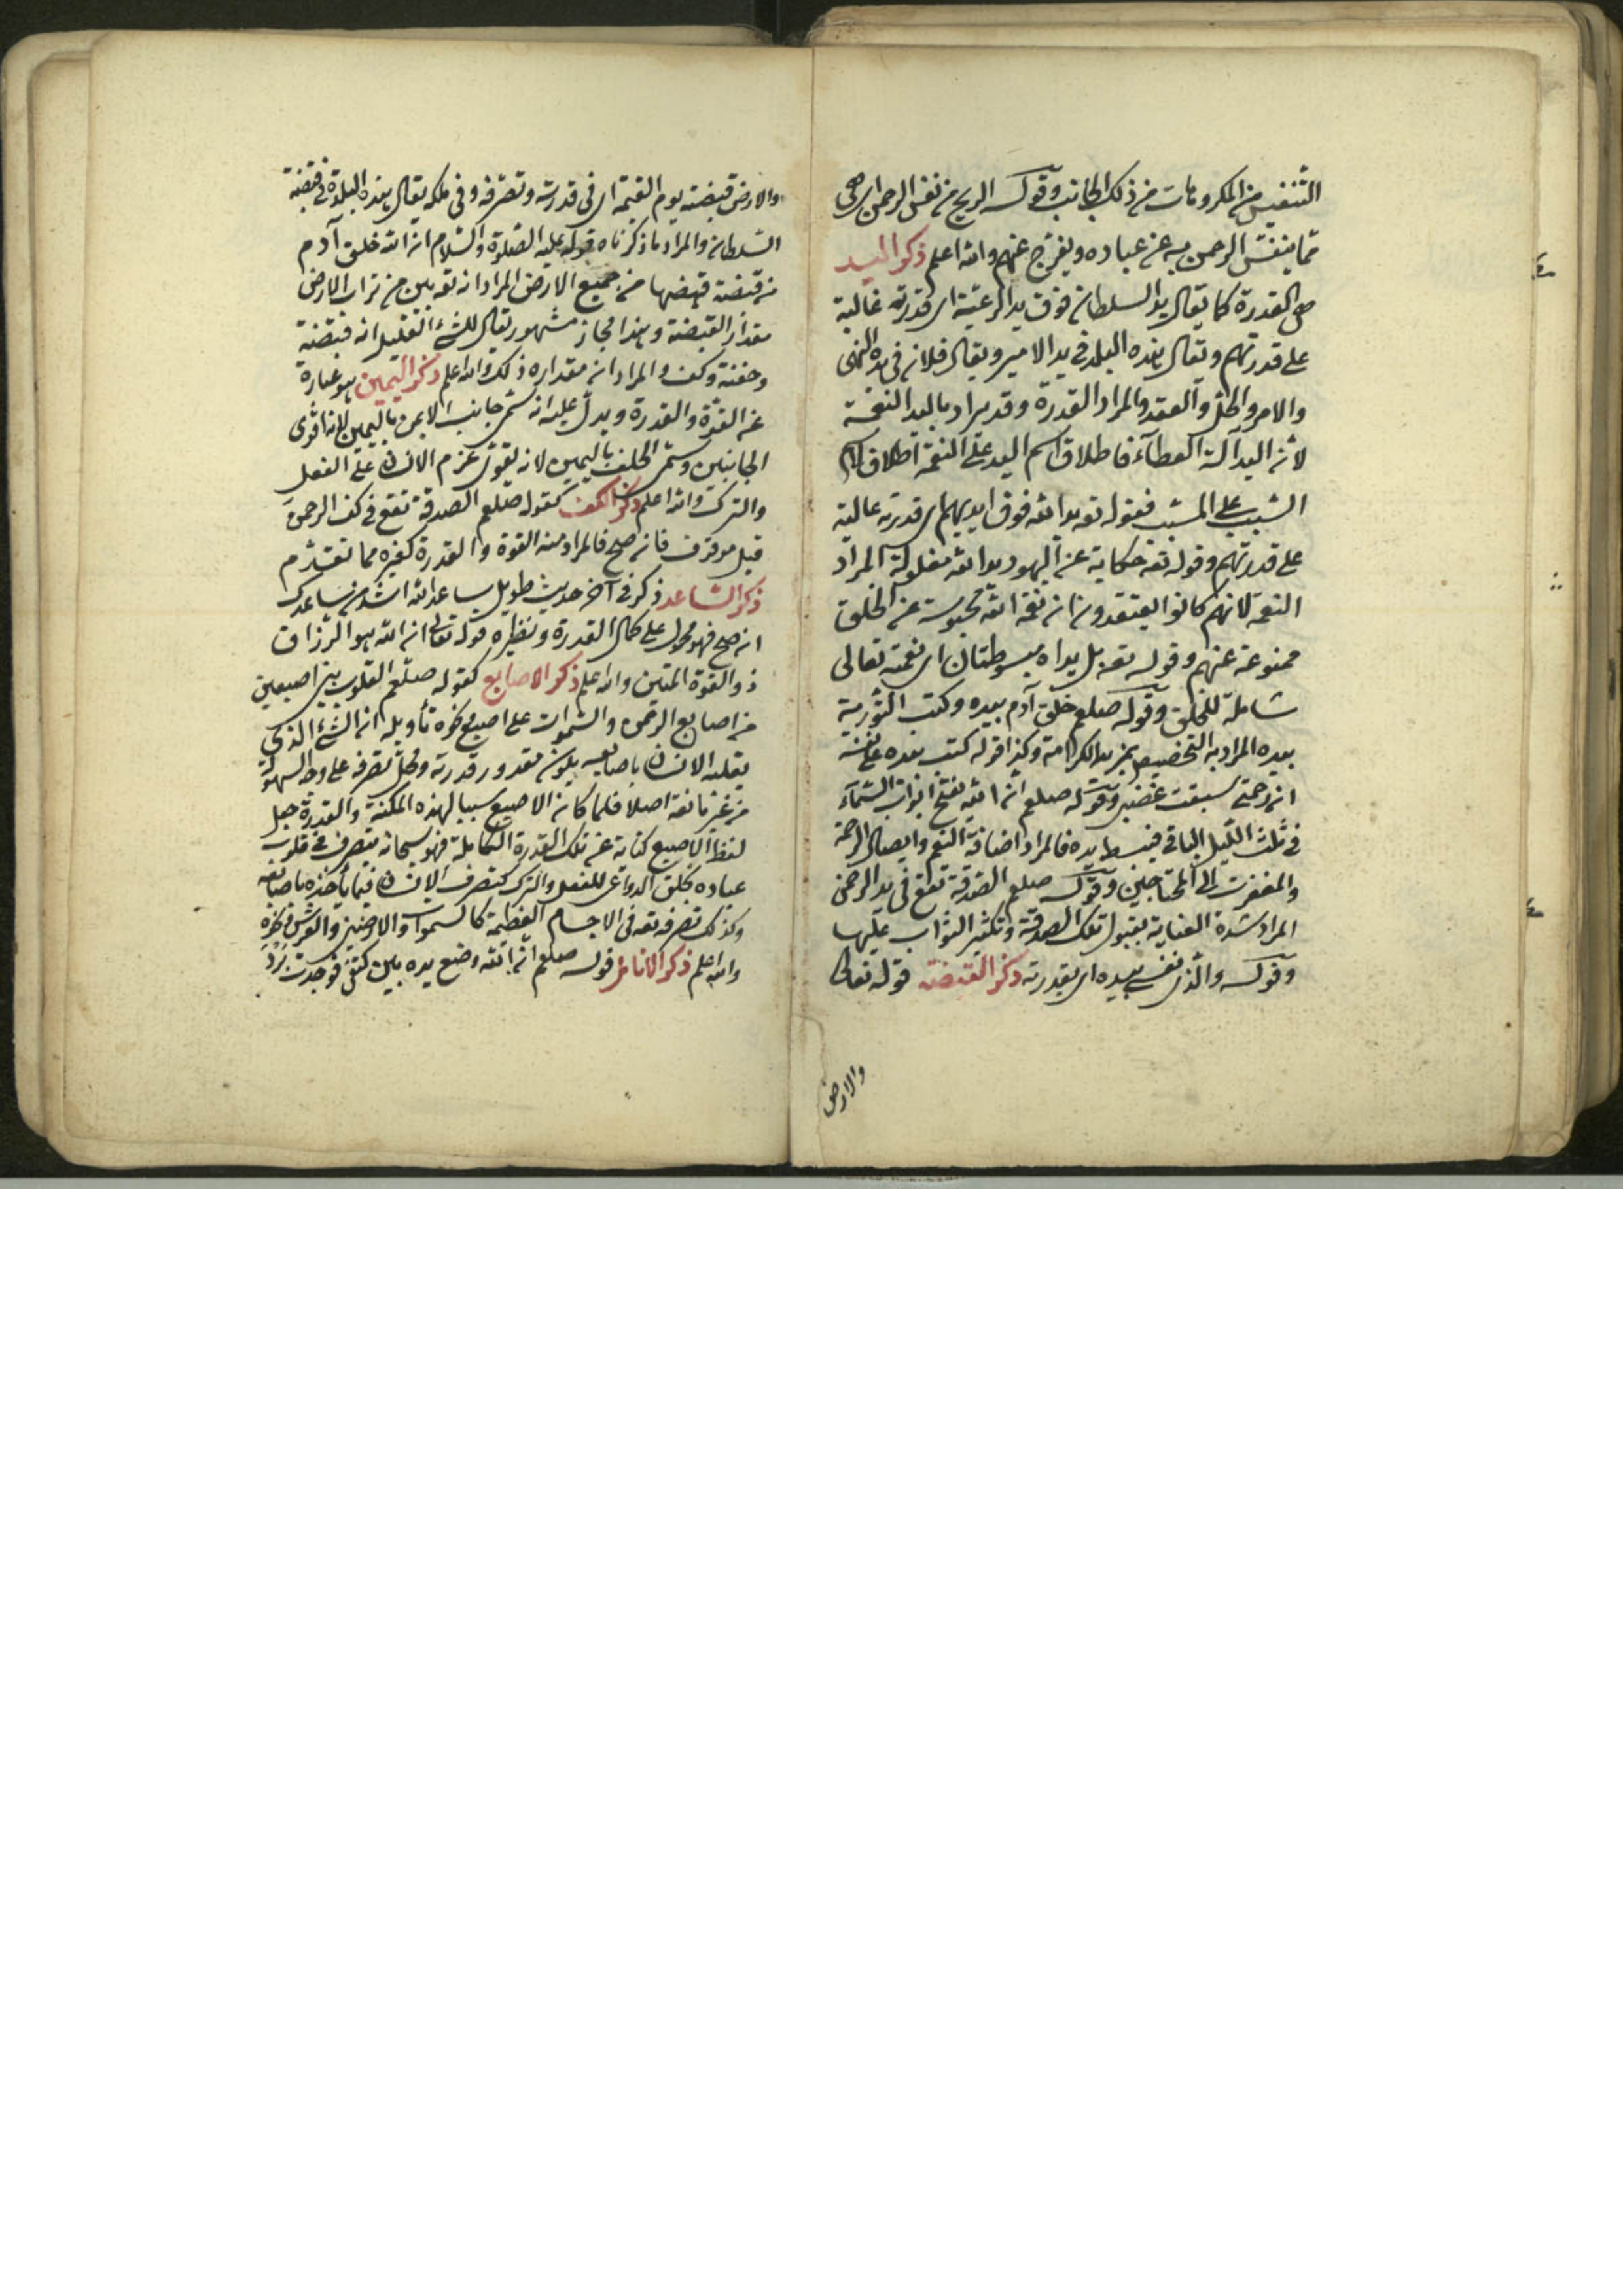 التنفيس من المكروهات من ذلك الجانب وقوله الريح من نفس الرحمن اى هى
مما ينفس الرحمن به عن عباده ويفرج عنهم والله اعلم ذكر اليد
هى القدرة كما يقال يد السلطان فوق يد الرعية اى قدرته غالبة
على قدرتهم ويقال هذه البلد فى يد الامير ويقال فلان فى يده النهى
والامر والحل والعقد والمراد القدرة وقد يراد باليد النعمة
لان اليد آلة العطاء فاطلاق اسم اليد على النعمة اطلاق اسم
السبب على المسبب فقوله تعه يد الله فوق ايديهم اى قدرته عالية
على قدرتهم وقوله تعه حكاية عن اليهود يد الله مغلولة المراد
النعمة لانهم كانوا يعتقدون ان نعمة الله محبوسة عن الخلق
ممنوعة عنهم وقوله تعه بل يداه مبسوطتان اى نعمته تعالى
شاملة للخلق وقوله صلعم خلق آدم بيده وكتب التورية
بيده المراد به التخصيص بمزيد الكرامة وكذا قوله كتب بيده على نفسه
ان رحمتى سبقت غضبى وقوله صلعم ان الله يفتح ابواب السماء
فى ثلث الليل الباقى فيبسط يده فالمراد اضافة النعم وايصال الرحمة
والمغفرت الى المحتاجين وقوله صلعم الصدقة تقع فى يد الرحمن
المراد شدة العناية بقبول تلك الصدقة وتكثير الثواب عليها
وقوله والذى نفسى بيده اى بقدرته ذكر القبضة قوله تعالى
والارض
والارض قبضته يوم القيمة اى فى قدرته وتصرفه وفى ملكه يقال هذه البلدة فى قبضة
السلطان والمراد ما ذكرناه قوله عليه الصلوة والسلام ان الله خلق آدم
من قبضة قبضها من جميع الارض المراد انه تعه بين من تراب الارض
مقدار القبضة وهذا مجاز مشهور يقال للشئ القليل انه قبضة
وحفنة وكف والمراد ان مقداره ذلك والله اعلم ذكر اليمين هو عبارة
عن القوة والقدرة ويدل عليه انه سمى جانب الايمن باليمين لانه اقوى
الجانبين وسمى الحلف باليمين لانه يقوى عزم الانسان على الفعل
والترك والله اعلم ذكر الكف كقوله صلعم الصدقة تقع فى كف الرحمن
قيل موقوف فان صح فالمراد منه القوة والقدرة كغيره مما تقدم
ذكر الساعد ذكر فى آخر حديث طويل ساعد الله اشد من ساعدك
ان صح فهو محمول على كمال القدرة ونظيره قوله تعالى ان الله هو الرزاق
ذو القوة المتين والله اعلم ذكر الاصابع كقوله صلعم القلوب بين اصبعين
من اصابع الرحمن والسموات على اصبع ذكره تأويله ان الشئ الذى
يقلبه الانسان باصابعه يكون مقدور قدرته ومحل تصرفه على وجه السهولة
من غير مانعة اصلا فلما كان الاصبع سببا لهذه المكنة والقدرة جعل
لفظ الاصبع كناية عن تلك القدرة الكاملة فهو سبحانه يتصرف فى قلوب
عباده بخلق الدواعى للفعل والترك كتصرف الانسان فيما يأخذه باصابعه
وكذلك تصرفه تعه فى الاجسام العظيمة كالسموات والارضين والعرش وغيره
والله اعلم ذكر الانامل قوله صلعم ان الله وضع يده بين كتفى فوجدت برد